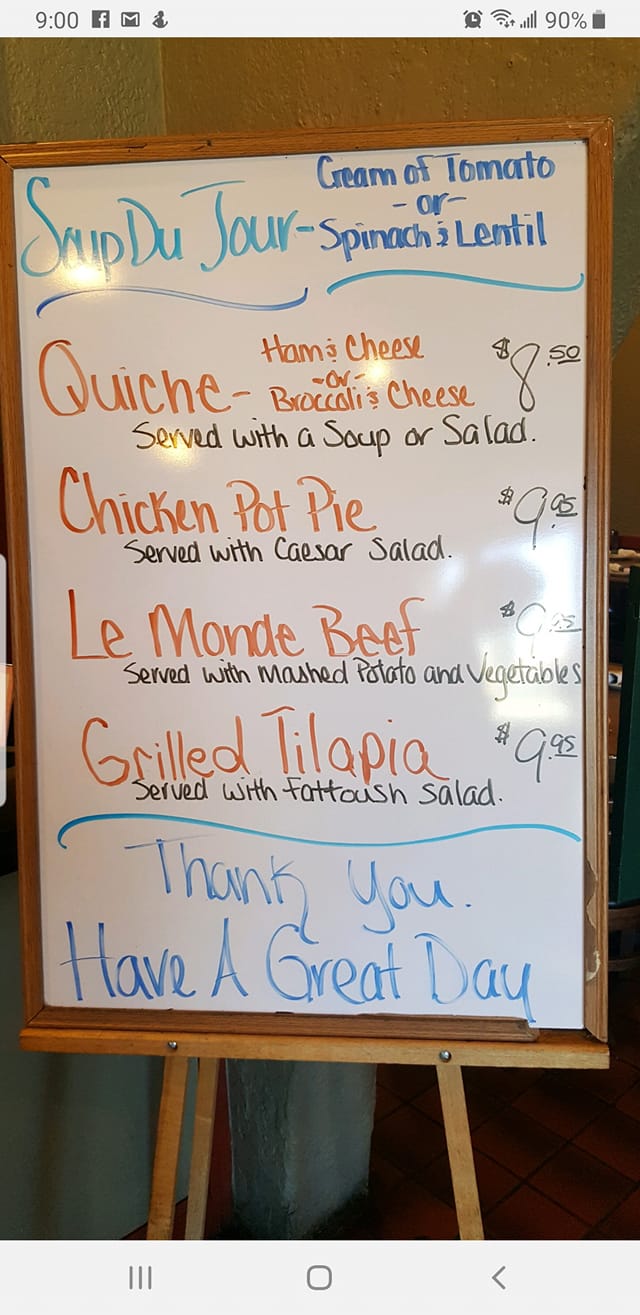 9:00
90%
Soup Du Jour - Cream of Tomato
- or -
Spinach & Lentil
Quiche - Ham & Cheese
- or -
Broccoli & Cheese
$8.50
Served with a Soup or Salad.
Chicken Pot Pie $9.95
Served with Caesar Salad.
Le Monde Beef $9.95
Served with Mashed Potato and Vegetables
Grilled Tilapia $9.95
Served with Fattoush Salad.
Thank You.
Have A Great Day